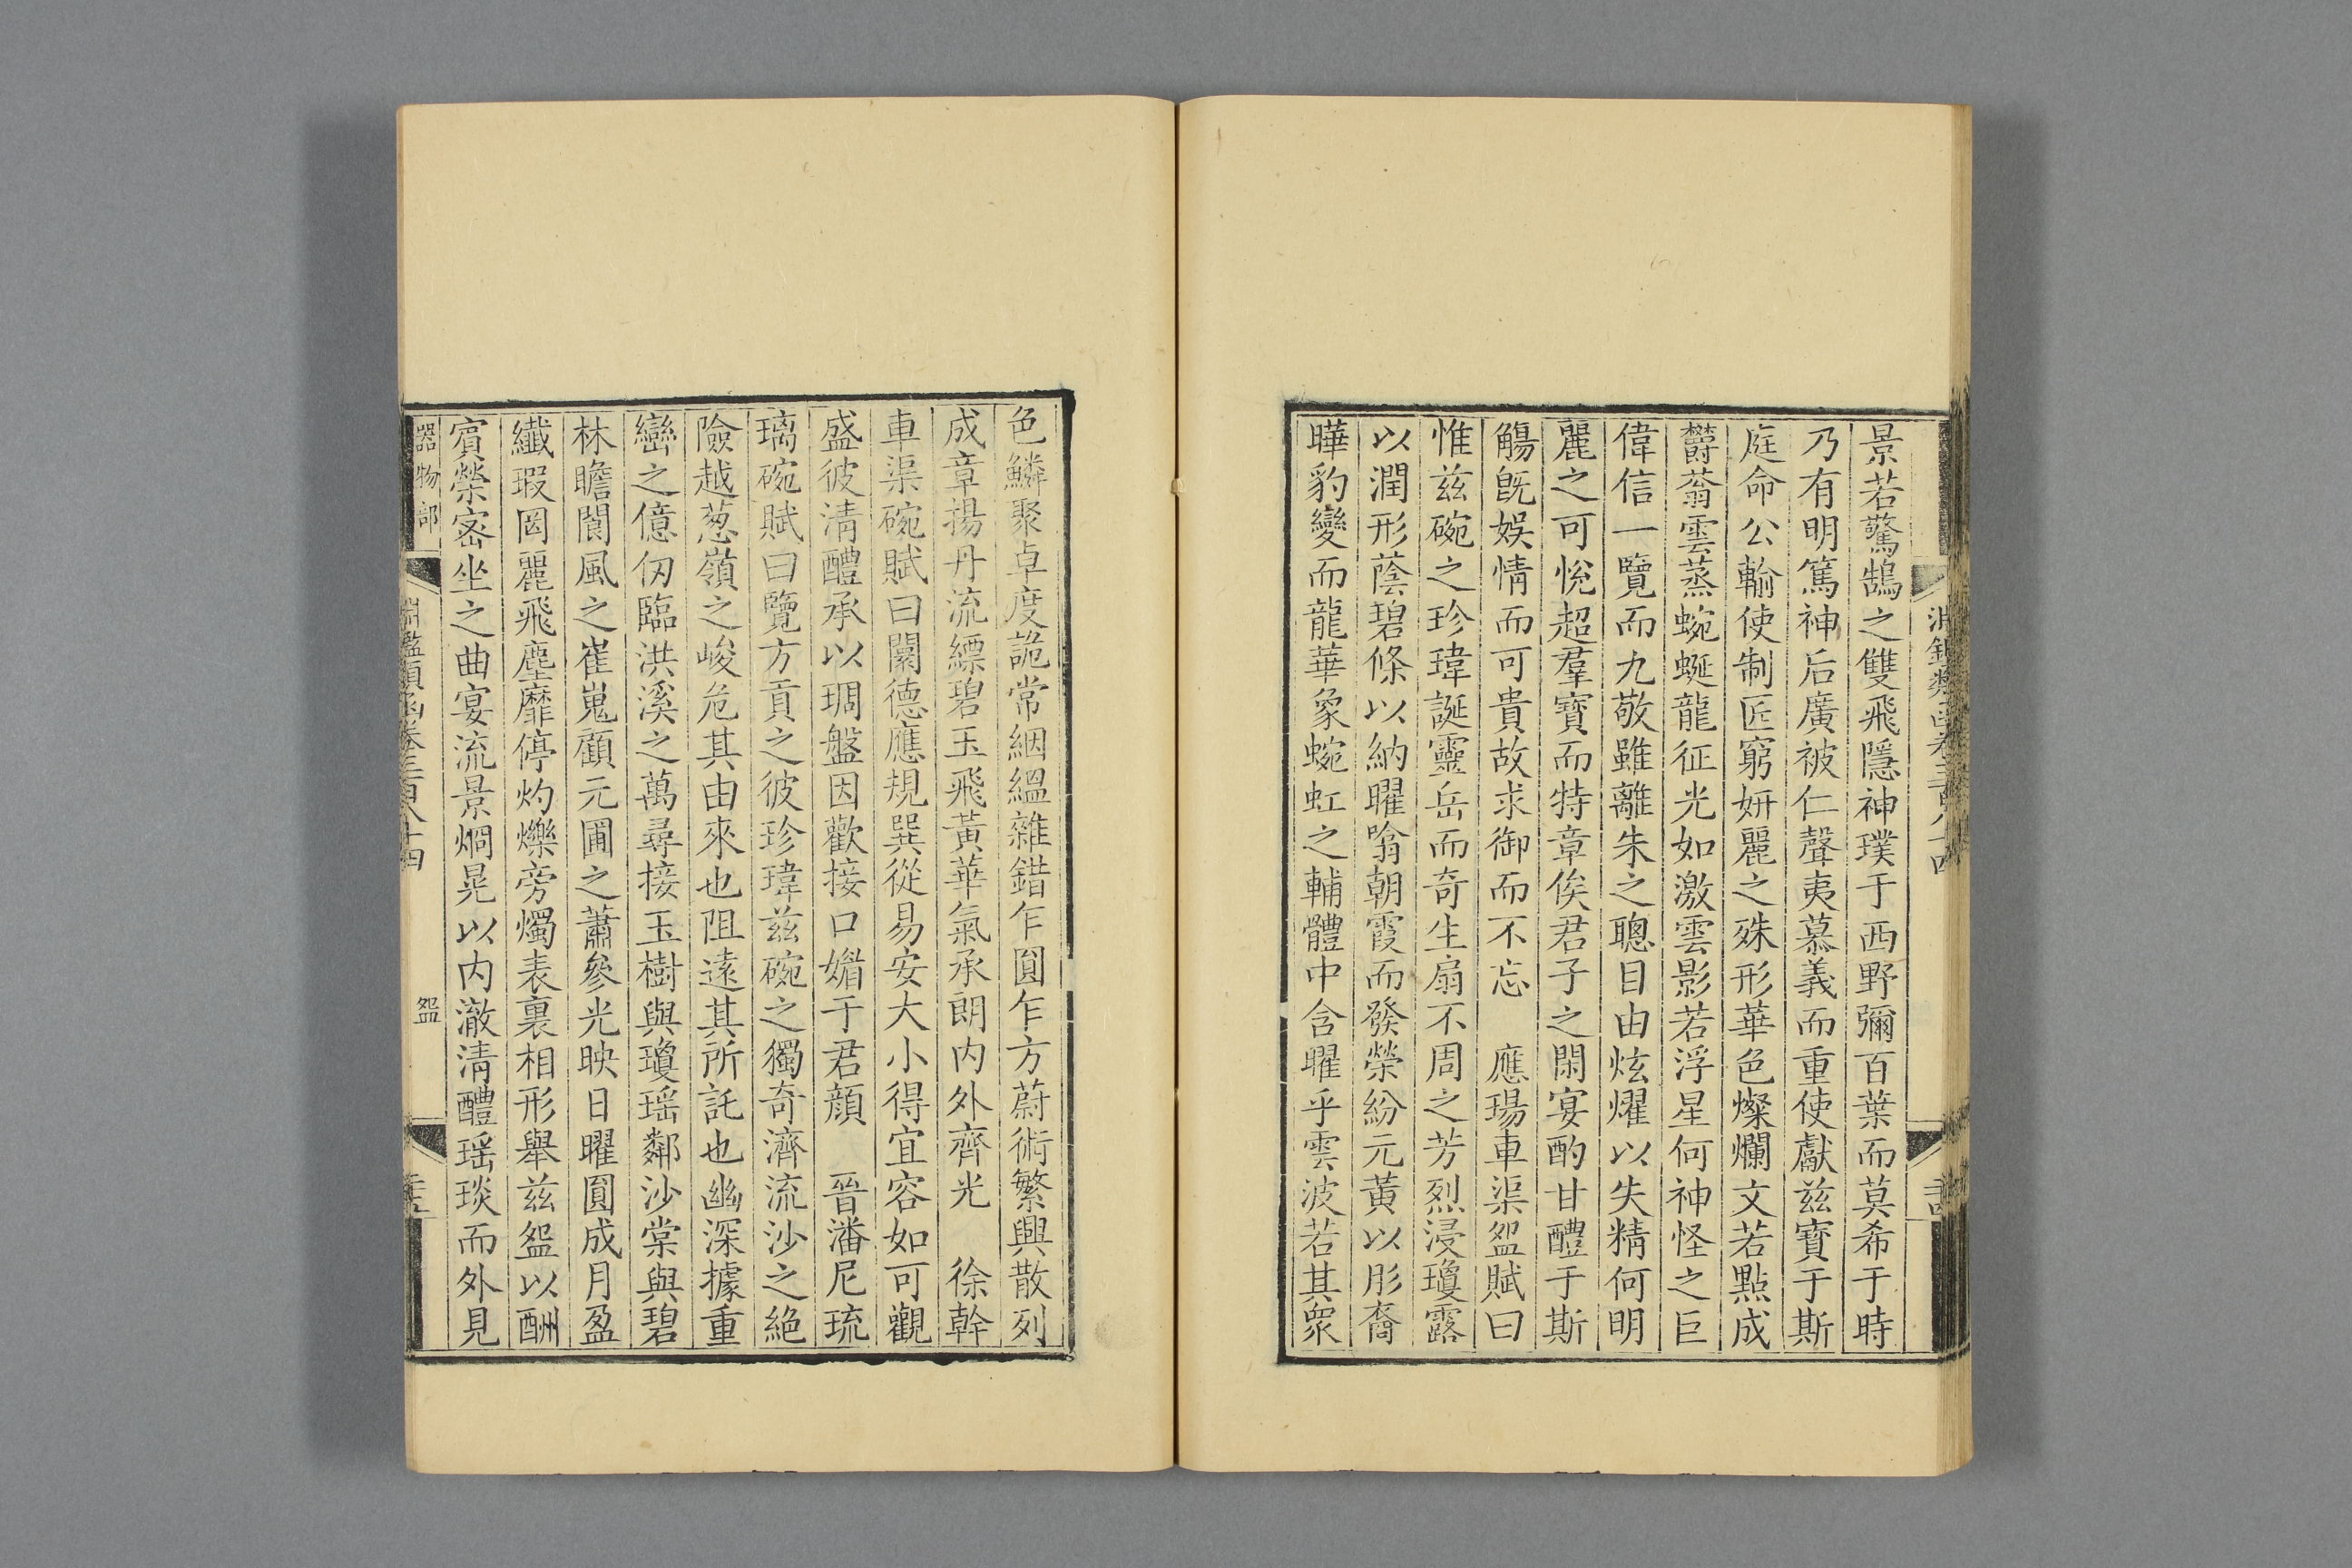 景若驚鵠之雙飛隱神璞于西野彌百葉而莫希于時
乃有明篤神后廣被仁聲夷慕義而重使獻兹寶于斯
庭命公輸使制匠窮妍麗之殊形華色燦爛文若點成
欝蓊雲蒸蜿蜒龍征光如激雲影若浮星何神怪之巨
偉信一覽而九敬雖離朱之聰目由炫燿以失精何明
麗之可悅超羣寶而特章俟君子之閑宴酌甘醴于斯
觴旣娛情而可貴故求御而不忘　應瑒車渠盌賦曰
惟兹碗之珍瑋誕靈岳而奇生扇不周之芳烈浸瓊露
以潤形蔭碧條以納曜噏朝霞而發榮紛元黃以彤裔
曄豹變而龍華象蜿虹之輔體中含曜乎雲波若其衆
色鱗聚卓度詭常絪縕雜錯乍圓乍方蔚術繁興散列
成章揚丹流縹碧玉飛黃華氣承朗内外齊光　徐幹
車渠碗賦曰圜德應規巽從易安大小得宜容如可觀
盛彼清醴承以琱盤因歡接口媚于君顔　晉潘尼琉
璃碗賦曰覽方貢之彼珍瑋兹碗之獨奇濟流沙之絶
險越葱嶺之峻危其由來也阻遠其所託也幽深據重
巒之億仞臨洪溪之萬尋接玉樹與瓊瑶鄰沙棠與碧
林瞻閬風之崔嵬顧元圃之蕭參光映日曜圓成月盈
纖瑕罔麗飛塵靡停灼爍旁燭表裏相形舉兹盌以酬
賓榮宻坐之曲宴流景烱晃以内澈清醴瑶琰而外見
器物部　淵鑑類函卷三百八十四　盌